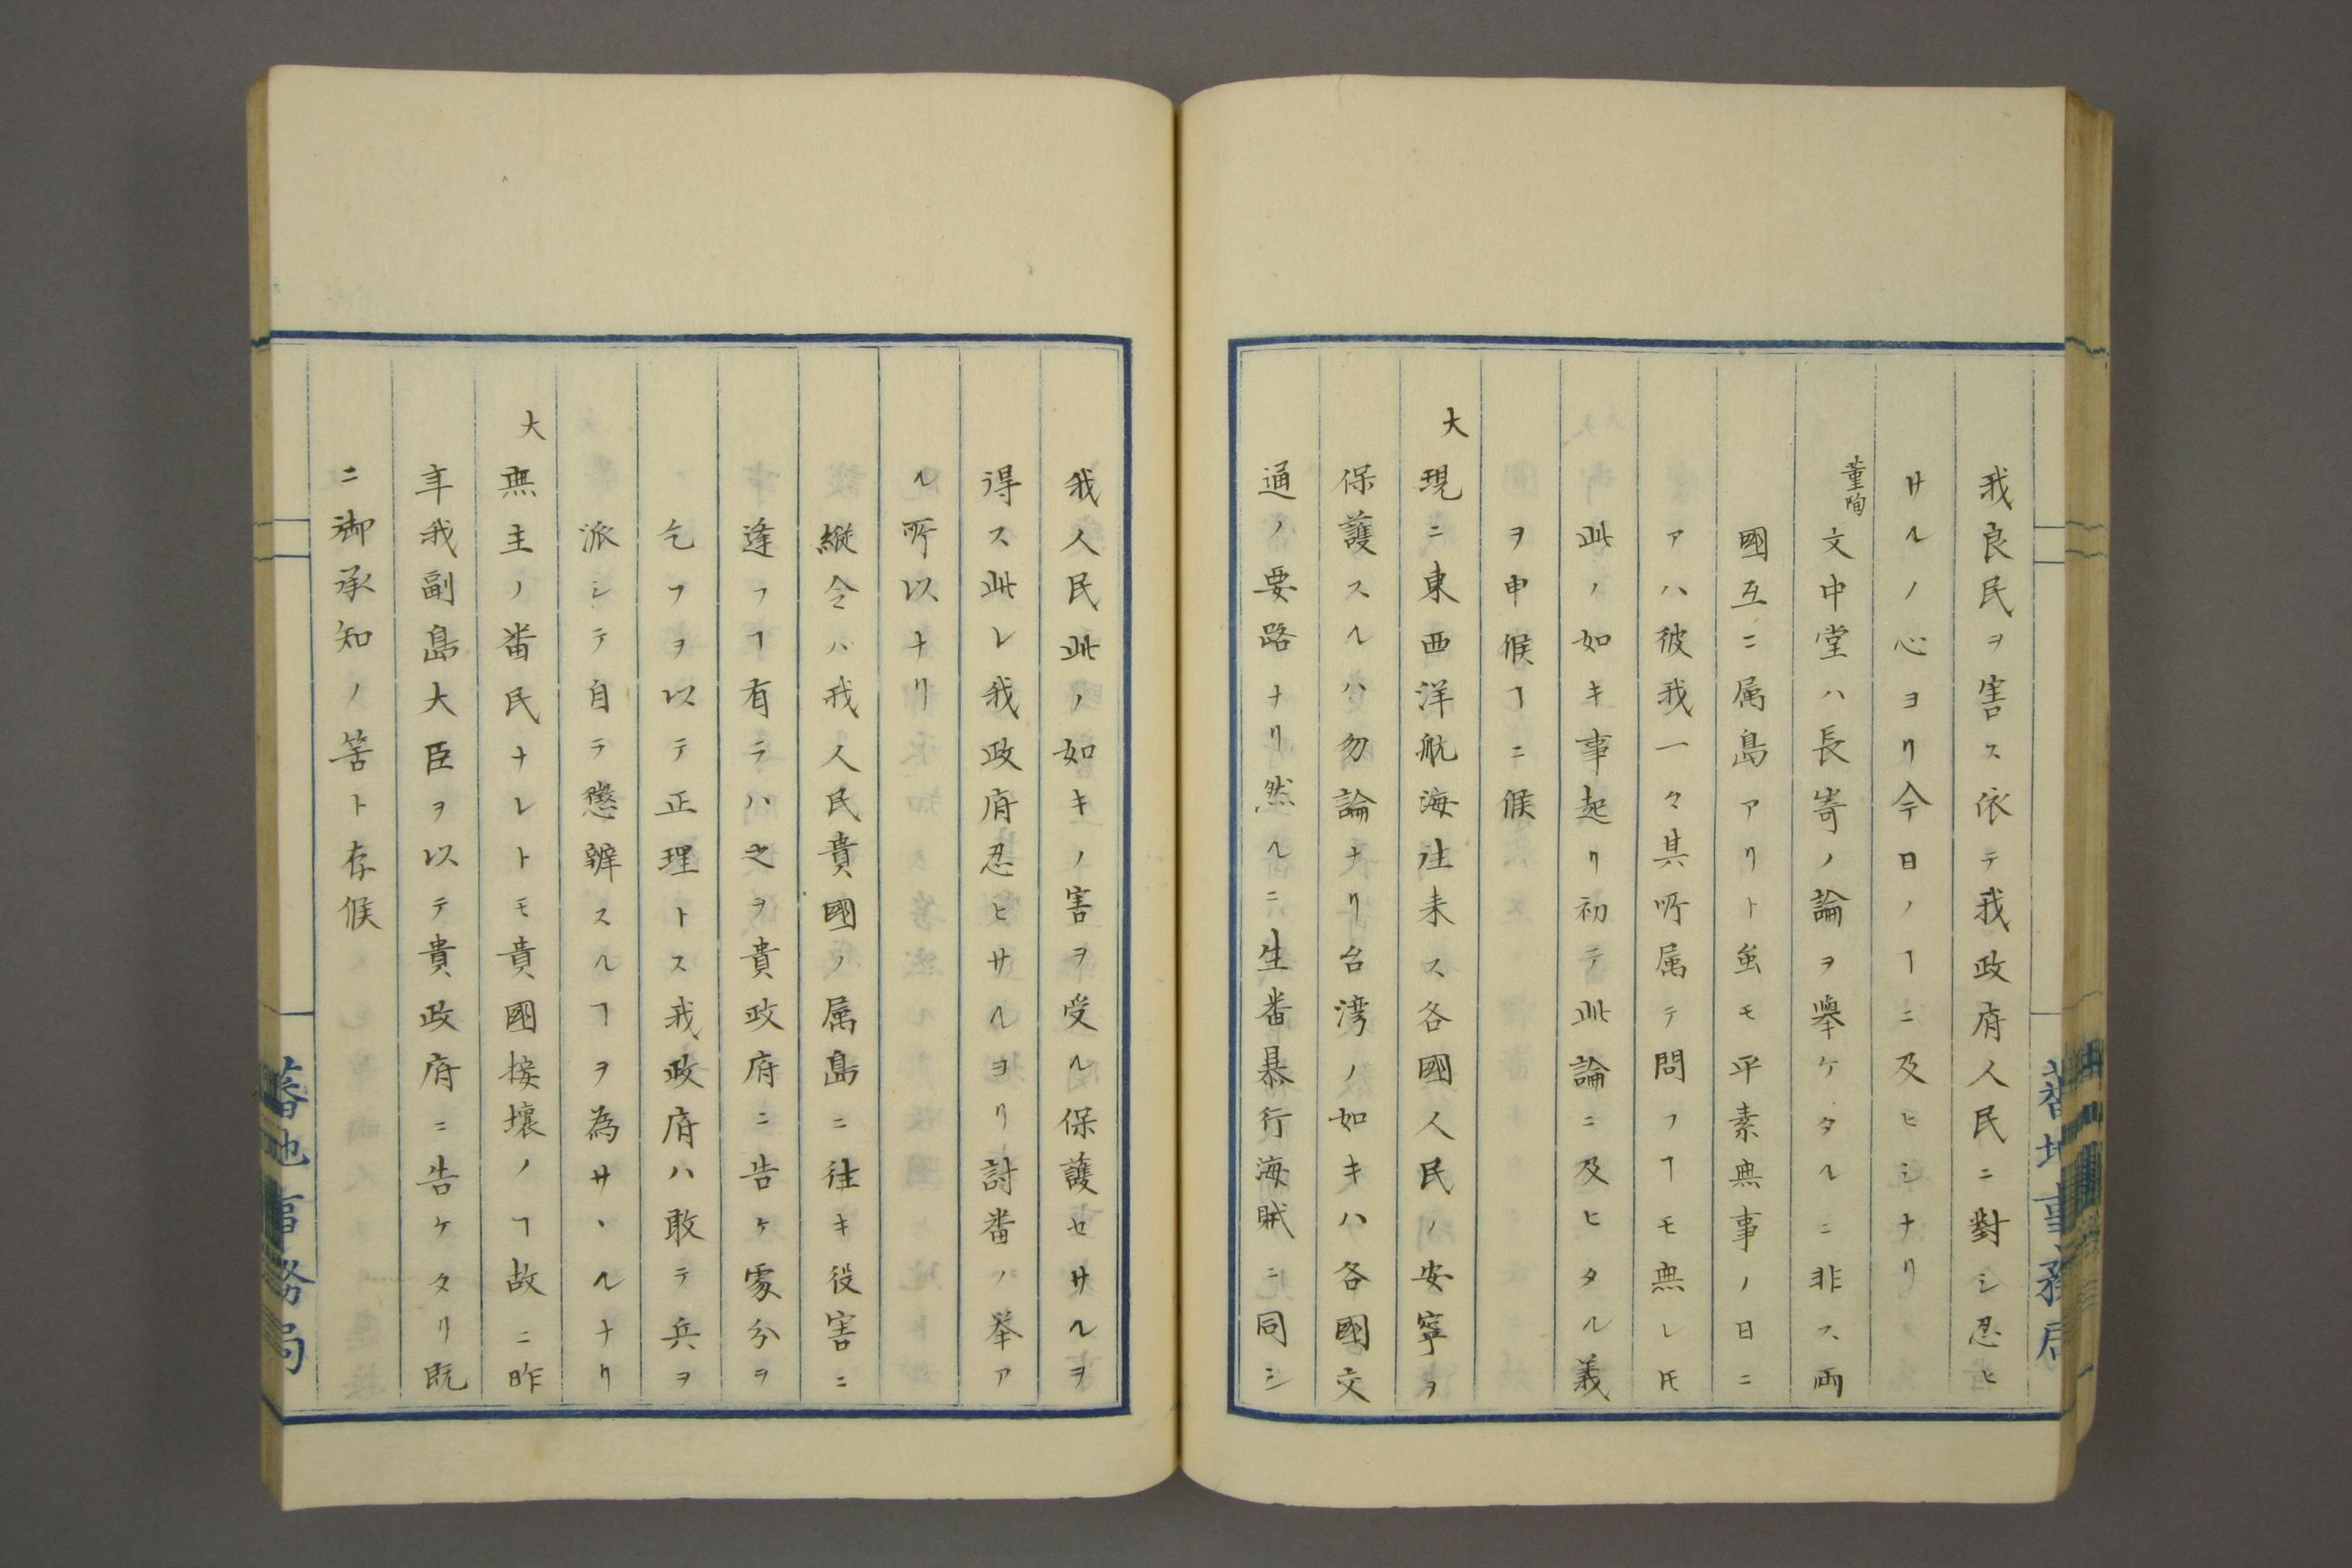 我良民ヲ害ス依テ我政府人民ニ對シ忍ヒ
サルノ心ヨリ今日ノヿニ及ヒシナリ
董恂 文中堂ハ長崎ノ論ヲ擧ケタルニ非ス両
國互ニ属島アリト虽モ平素無事ノ日ニ
アハ彼我一々其所属テ問フヿモ無レ𪜈
此ノ如キ事起リ初テ此論ニ及ヒタル義
ヲ申候ヿニ候
大 現ニ東西洋航海往来ス各國人民ノ安寧ヲ
保護スルハ勿論ナリ台湾ノ如キハ各國交
通ノ要路ナリ然ルニ生番暴行海賊ニ同シ
我人民此ノ如キノ害ヲ受ル保護セサルヲ
得ス此レ我政府忍ヒサルヨリ討番ノ挙ア
ル所以ナリ
縦令ハ我人民貴國ノ属島ニ往キ役害ニ
逢フヿ有テハ之ヲ貴政府ニ告ケ處分ヲ
乞フヲ以テ正理トス我政府ハ敢テ兵ヲ
派シテ自ラ懲辨スルヿヲ為サヽルナリ
大 無主ノ番民ナレトモ貴國接壤ノヿ故ニ昨
年我副島大臣ヲ以テ貴政府ニ告ケタリ既
ニ御承知ノ筈ト存候
蕃地事務局